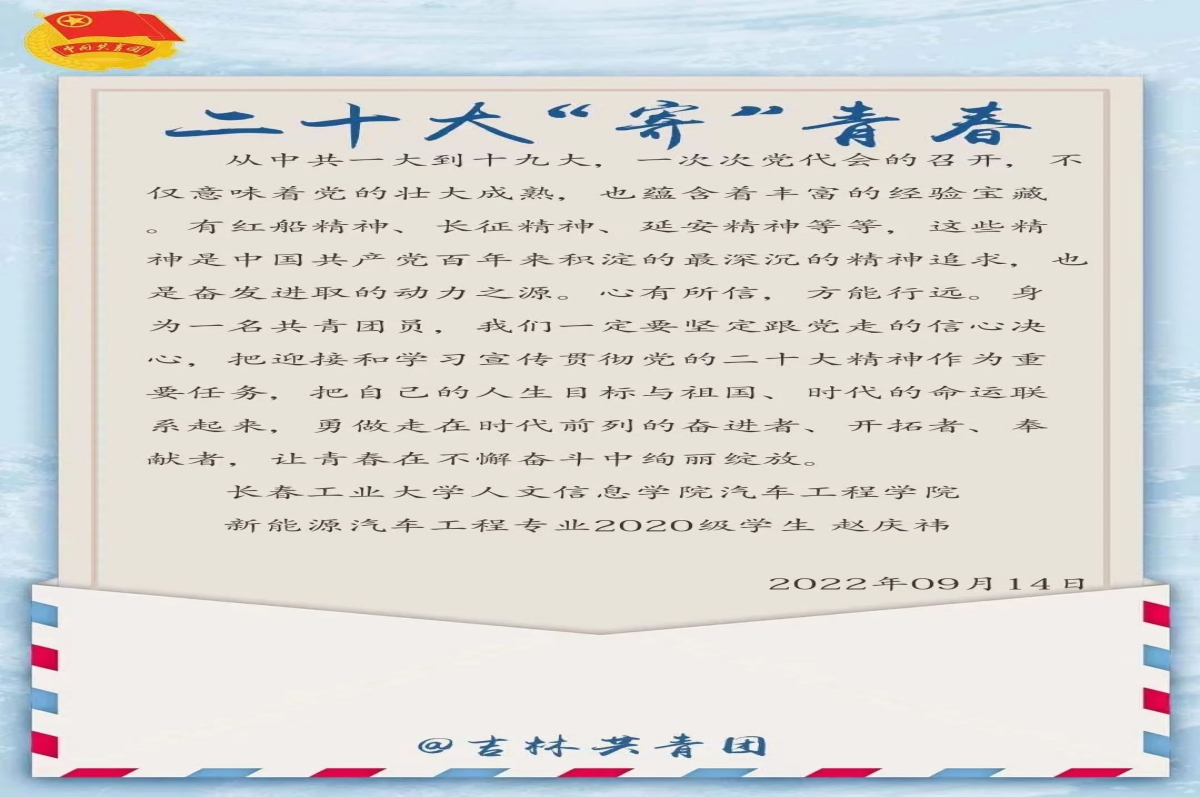 中国共青团
二十大“寄”青春
从中共一大到十九大，一次次党代会的召开，不
仅意味着党的壮大成熟，也蕴含着丰富的经验宝藏
。有红船精神、长征精神、延安精神等等，这些精
神是中国共产党百年来积淀的最深沉的精神追求，也
是奋发进取的动力之源。心有所信，方能行远。身
为一名共青团员，我们一定要坚定跟党走的信心决
心，把迎接和学习宣传贯彻党的二十大精神作为重
要任务，把自己的人生目标与祖国、时代的命运联
系起来，勇做走在时代前列的奋进者、开拓者、奉
献者，让青春在不懈奋斗中绚丽绽放。
长春工业大学人文信息学院汽车工程学院
新能源汽车工程专业2020级学生 赵庆祎
2022年09月14日
@吉林共青团